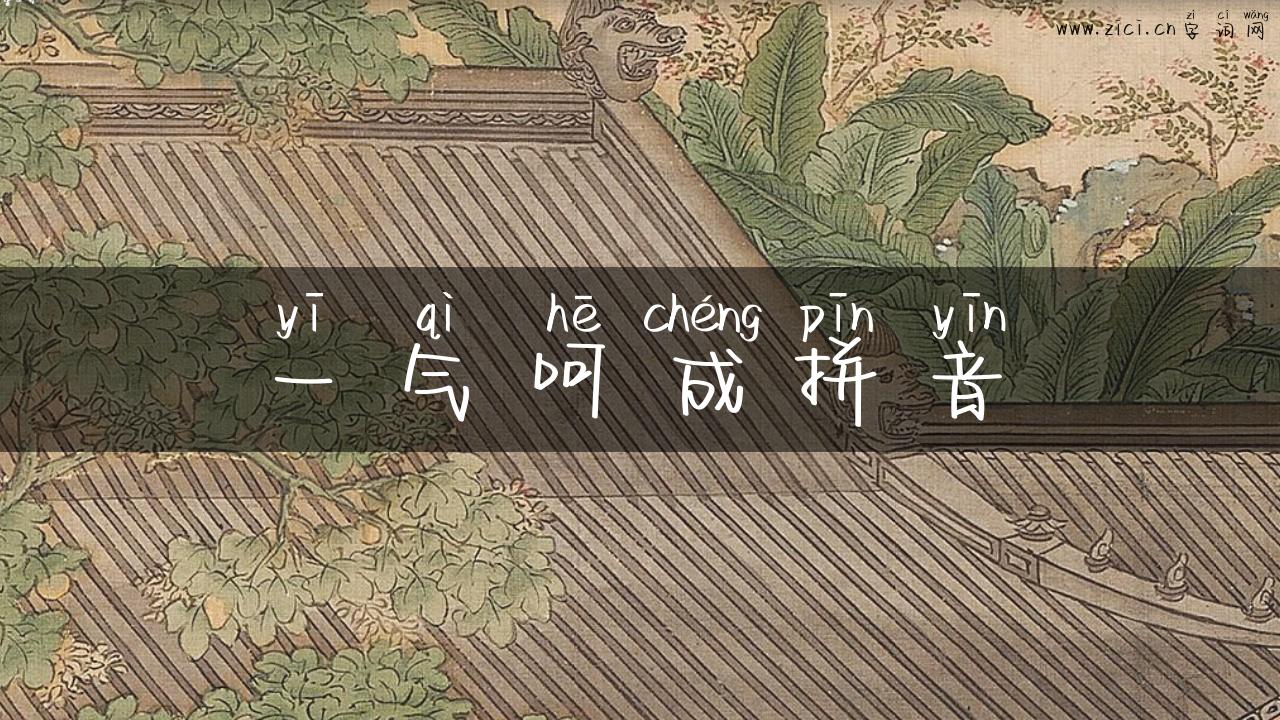 zì cí wǎng
www.zici.cn 字词网
yī qì hē chéng pīn yīn
一气呵成拼音